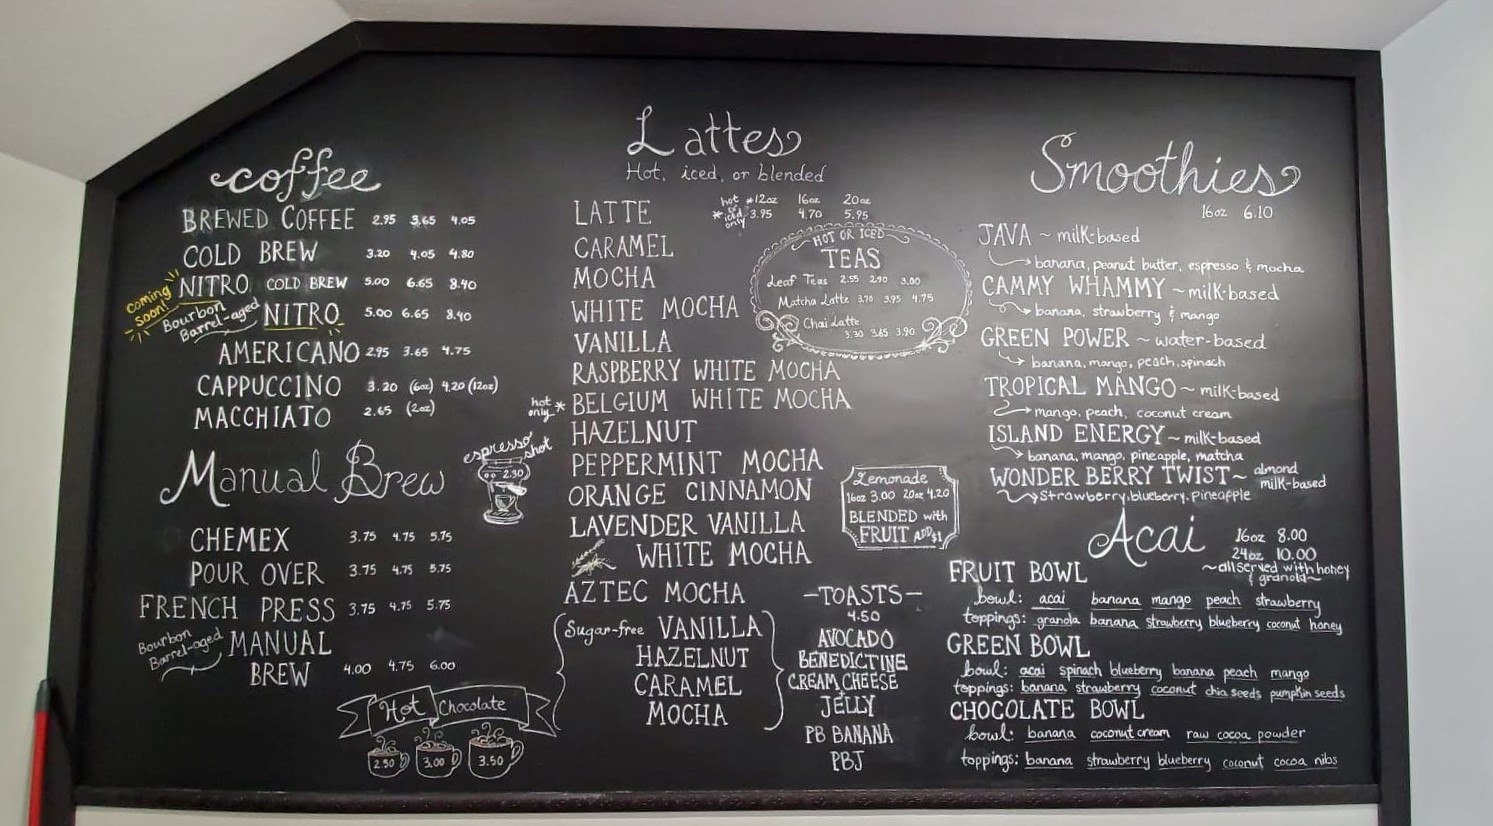 coffee
BREWED COFFEE 2.95 3.65 4.05
COLD BREW 3.20 4.05 4.80
NITRO COLD BREW 5.00 6.65 8.40
coming soon!
Bourbon Barrel-aged NITRO 5.00 6.65 8.40
AMERICANO 2.95 3.65 4.75
CAPPUCCINO 3.20 (6oz) 4.20 (12oz)
MACCHIATO 2.65 (2oz)
Manual Brew
CHEMEX 3.75 4.75 5.75
POUR OVER 3.75 4.75 5.75
FRENCH PRESS 3.75 4.75 5.75
Bourbon Barrel-aged MANUAL
BREW 4.00 4.75 6.00
espresso shot
2.30
Hot Chocolate
2.50 3.00 3.50
Lattes
Hot, iced, or blended
*12oz 16oz 20oz
*hot or iced only 3.95 4.70 5.95
LATTE
CARAMEL
MOCHA
WHITE MOCHA
VANILLA
RASPBERRY WHITE MOCHA
hot only * BELGIUM WHITE MOCHA
HAZELNUT
PEPPERMINT MOCHA
ORANGE CINNAMON
LAVENDER VANILLA
WHITE MOCHA
AZTEC MOCHA
Sugar-free VANILLA
HAZELNUT
CARAMEL
MOCHA
HOT OR ICED
TEAS
Leaf Teas 2.55 2.90 3.00
Matcha Latte 3.70 3.95 4.75
Chai Latte
3.30 3.65 3.90
Lemonade
16oz 3.00 20oz 4.20
BLENDED with
FRUIT ADD $1
-TOASTS-
4.50
AVOCADO
BENEDICTINE
CREAM CHEESE
+
JELLY
PB BANANA
PBJ
Smoothies
16oz 6.10
JAVA ~ milk-based
banana, peanut butter, espresso & mocha
CAMMY WHAMMY ~ milk-based
banana, strawberry & mango
GREEN POWER ~ water-based
banana, mango, peach, spinach
TROPICAL MANGO ~ milk-based
mango, peach, coconut cream
ISLAND ENERGY ~ milk-based
banana, mango, pineapple, matcha
WONDER BERRY TWIST ~ almond milk-based
strawberry, blueberry, pineapple
Acai
16oz 8.00
24oz 10.00
~all served with honey
& granola~
FRUIT BOWL
bowl: acai banana mango peach strawberry
toppings: granola banana strawberry blueberry coconut honey
GREEN BOWL
bowl: acai spinach blueberry banana peach mango
toppings: banana strawberry coconut chia seeds pumpkin seeds
CHOCOLATE BOWL
bowl: banana coconut cream raw cocoa powder
toppings: banana strawberry blueberry coconut cocoa nibs